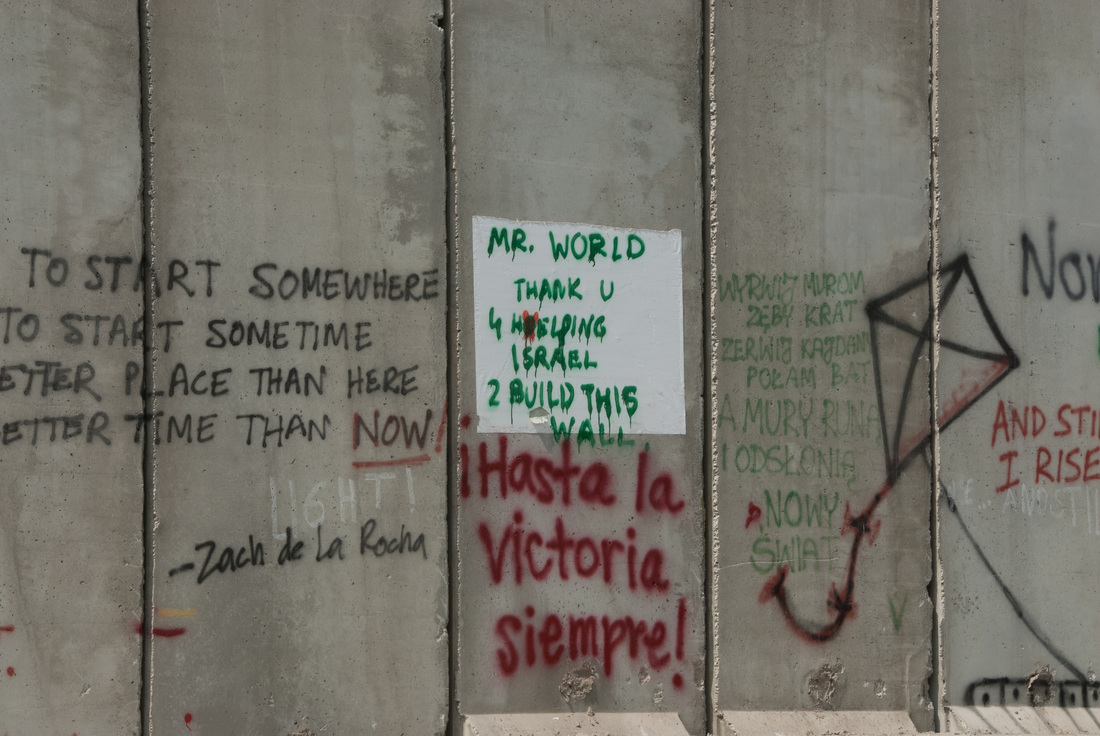 TO START SOMEWHERE
TO START SOMETIME
ETTER PLACE THAN HERE
ETTER TIME THAN NOW!
LIGHT!
-Zach de la Rocha
MR. WORLD
THANK U
4 HELPING
ISRAEL
2 BUILD THIS
WALL.
¡Hasta la
Victoria
siempre!
WYRWIJ MUROM
ZĘBY KRAT
ZERWIJ KAJDANY
POŁAM BAT
A MURY RUNĄ
I ODSŁONIĄ
NOWY
ŚWIAT
V
Now
AND STIL
I RISE